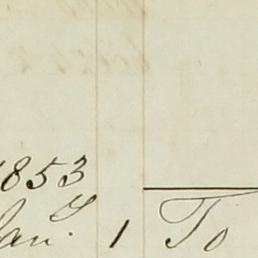 1853
Jan.y 1 To